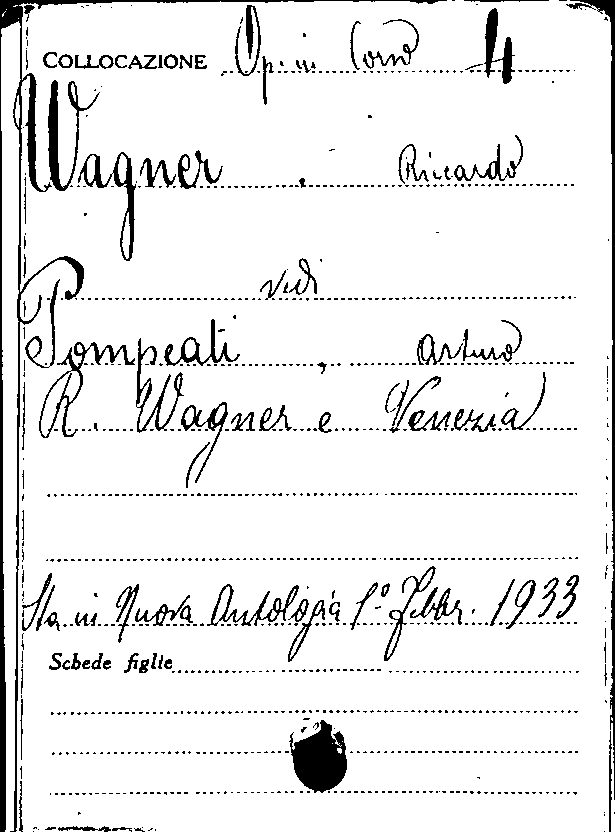 COLLOCAZIONE Op. in Corso 4
Wagner . Riccardo
vedi
Pompeati , Arturo
R. Wagner e Venezia
Sta in Nuova Antologia 1º Febbr. 1933
Schede figlie